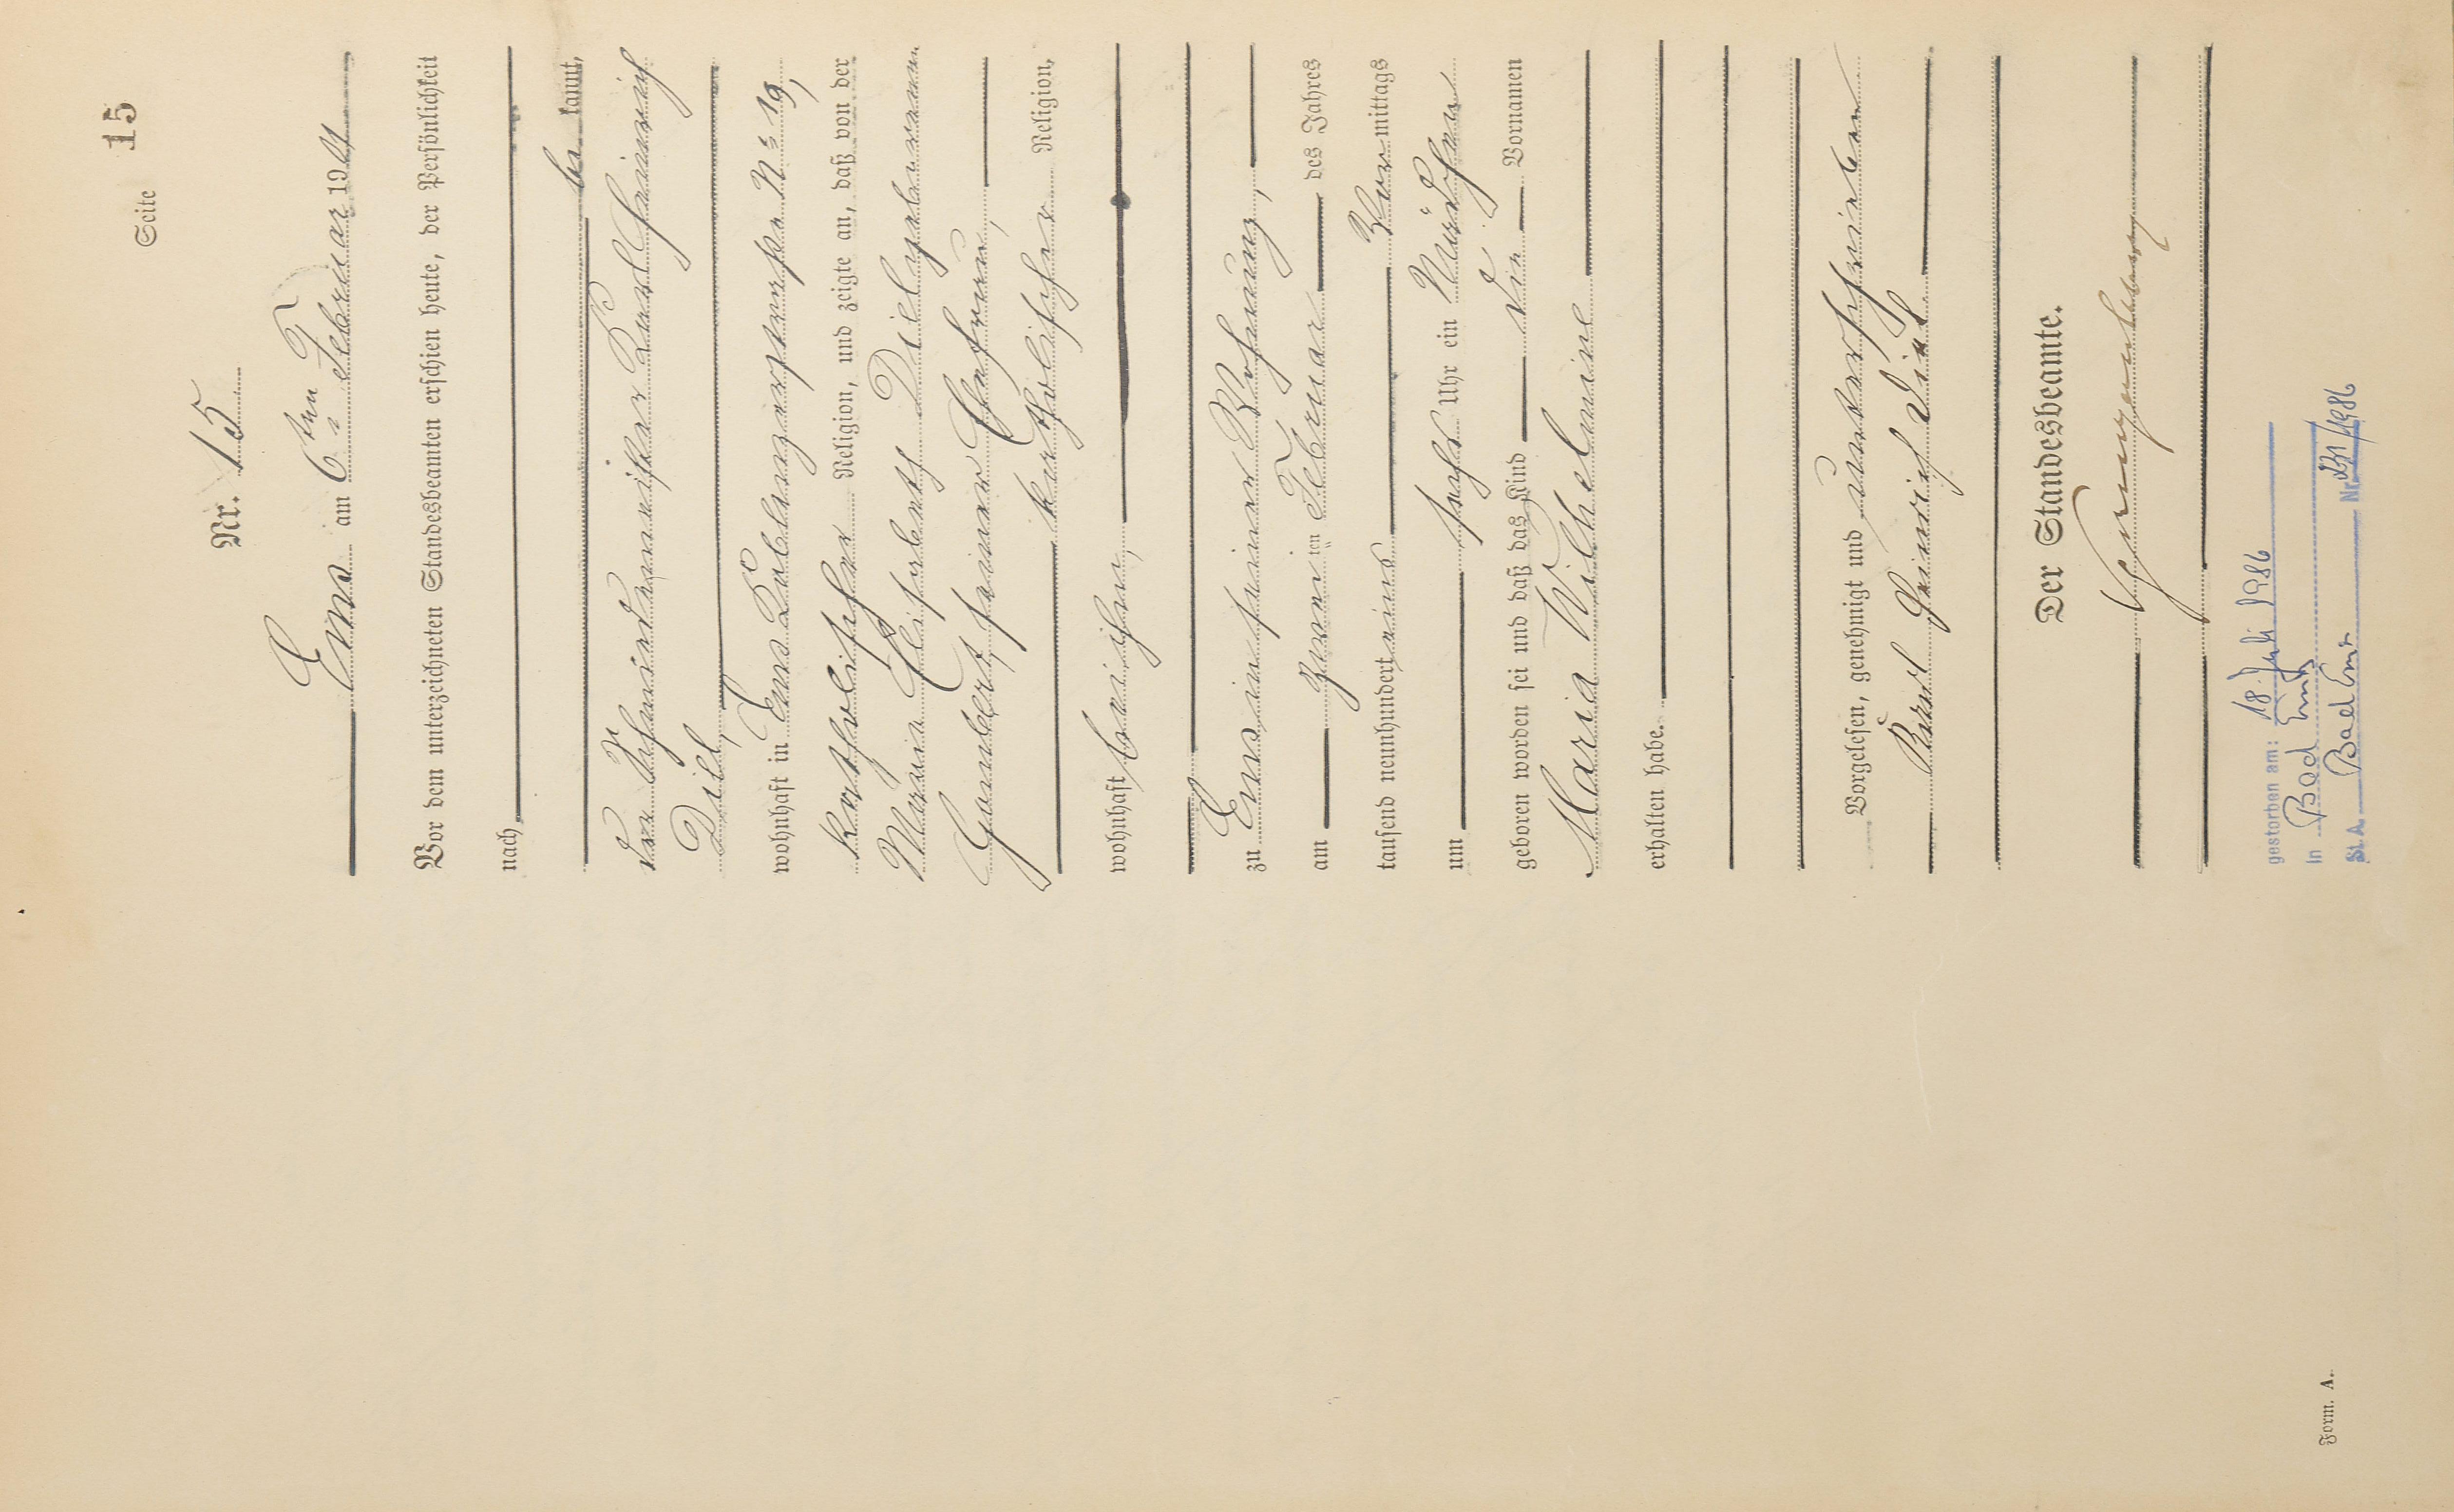 Seite 15
Nr. 15
Ems am 6ten Februar 1901
Vor dem unterzeichneten Standesbeamten erschien heute, der Persönlichkeit
nach
be kannt,
der Schneidermeister Karl Heinrich
Diel,
wohnhaft in Ems Coblenzerstraße No 19,
katholischer Religion, und zeigte an, daß von der
Maria Elisabeth Diel geborenen
seiner Ehefrau,
katholischer Religion,
wohnhaft bei ihm,
zu Ems in seiner Wohnung,
am zweiten Februar des Jahres
tausend neunhundert eins Vormittags
um sechs Uhr ein Mädchen
geboren worden sei und daß das Kind die Vornamen
Maria Wilhelmine
erhalten habe.
Vorgelesen, genehmigt und unterschrieben
Karl Heinrich Diel
Der Standesbeamte.
gestorben am: 18. Juli 1986
in Bad Ems
St. A. Bad Ems Nr. 231/1986
Form. A.